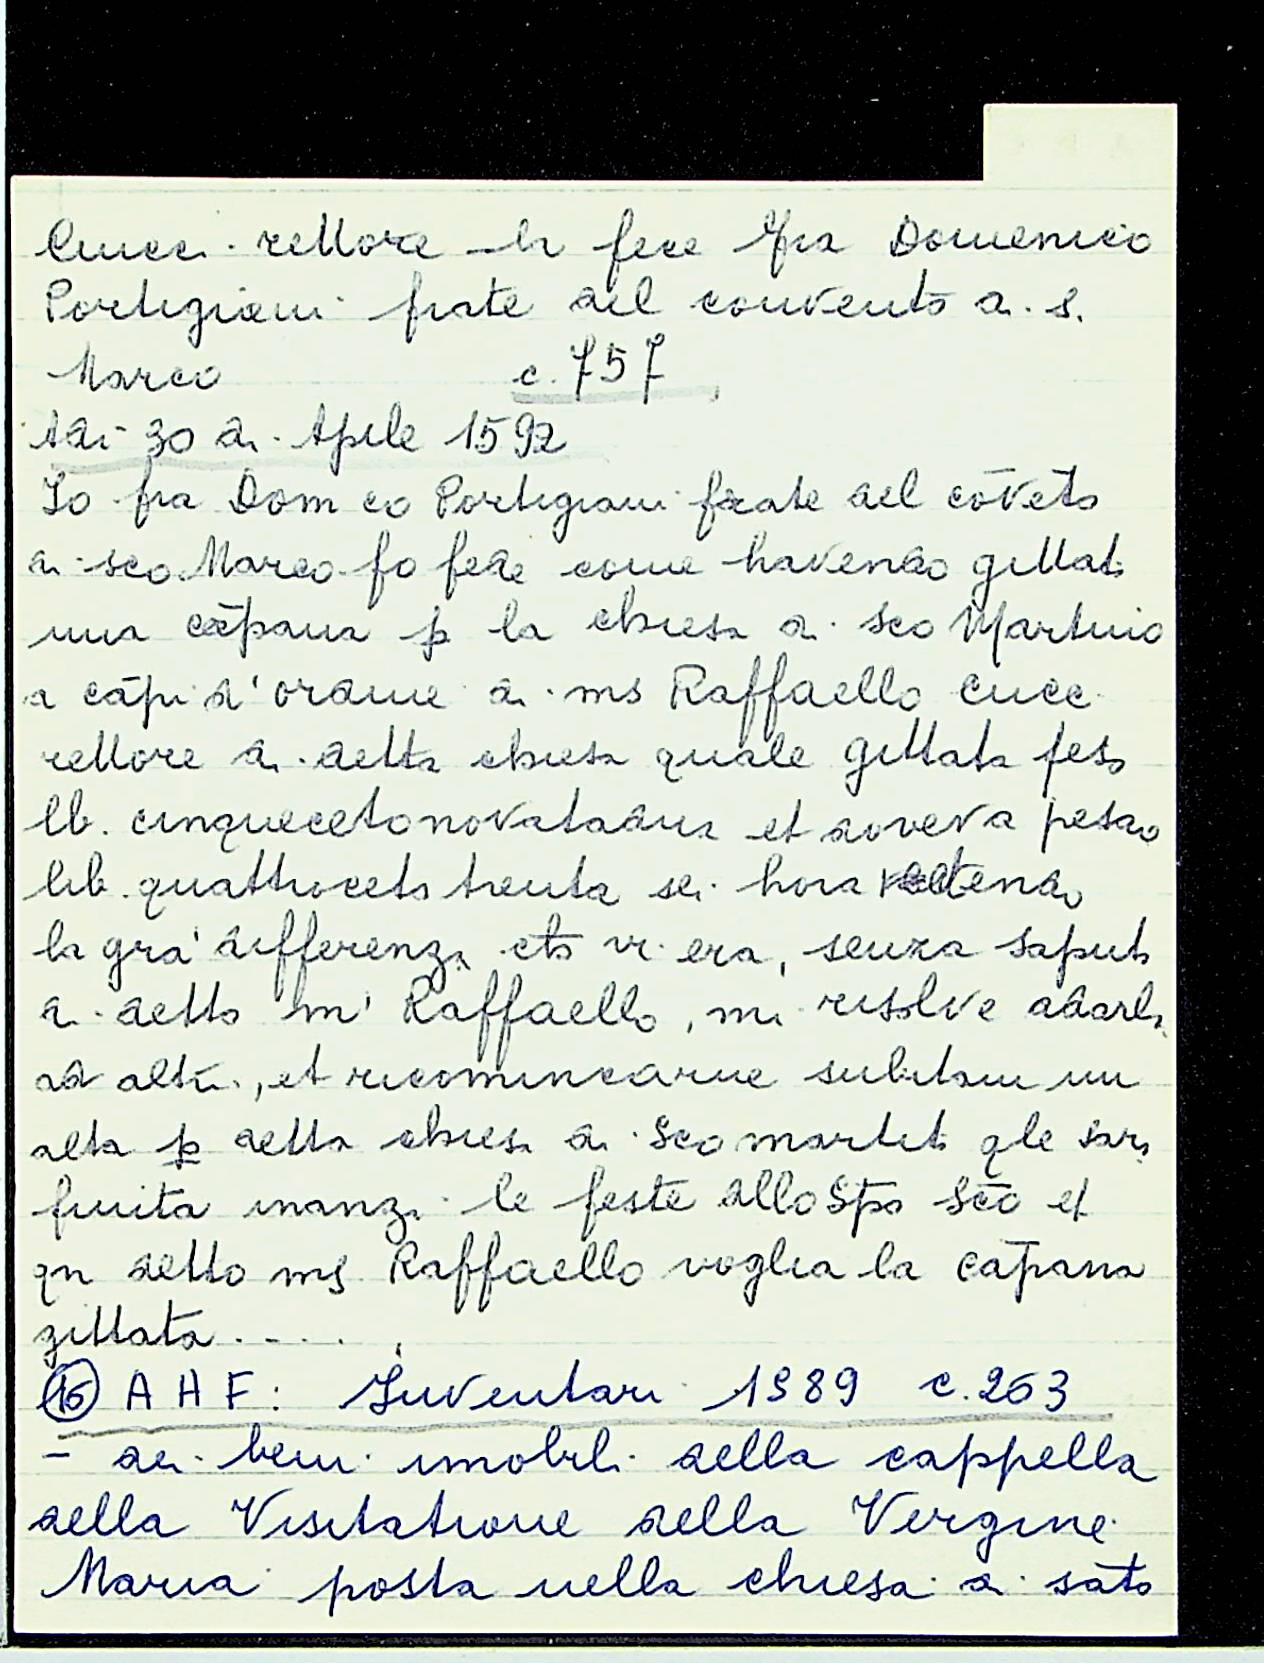 Cucci rettore la fece fra Domenico
Portigiani frate del convento di S.
Marco c. 757
Adi 30 di Aprile 1592
Io fra Domco Portigiani frate del cōvēto
di sco Marco fo fede come havendo gittato
una cāpana p la chiesa di sco Martino
a cāpi d'ordine di ms Raffaello Cucci
rettore di detta chiesa quale gittata peso
lb. cinquecetonovātadua et doveva pesare
lib. quattrocēto trenta sei hora
la grā differenza vi era, senza saputo
di detto m' Raffaello, mi risolve a darla
ad altri, et ricominciarne subitam un
altra p detta chiesa di sco martīo qle sara
finita inanzi le feste dello Spō Scō et
qn detto ms Raffaello voglia la cāpana
gittata .....
(15) A H F: Inventari 1989 c. 263
- dei beni imobili della cappella
della Visitatione della Vergine
Maria posta nella chiesa di sāto